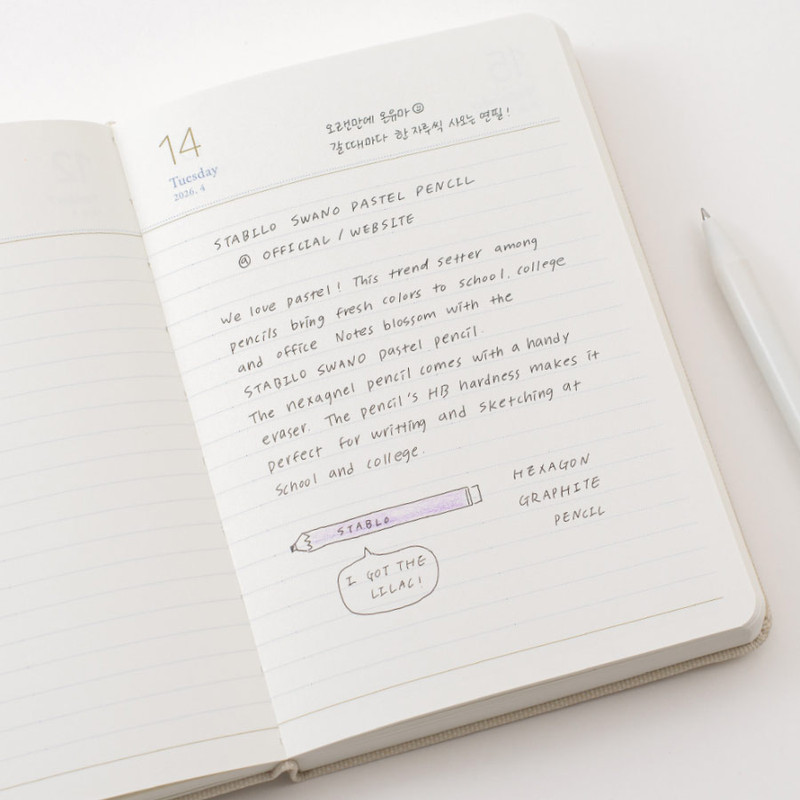 14
Tuesday
2026. 4
오랜만에 온유마 ☺
갈 때마다 한 자루씩 사오는 연필!
STABILO SWANO PASTEL PENCIL
@ OFFICIAL / WEBSITE
We love pastel! This trend setter among
pencils bring fresh colors to school, college
and office Notes blossom with the
STABILO SWANO pastel pencil.
The hexagnel pencil comes with a handy
eraser. The pencil's HB hardness makes it
perfect for writting and sketching at
school and college.
HEXAGON
GRAPHITE
PENCIL
STABLO
I GOT THE
LILAC!